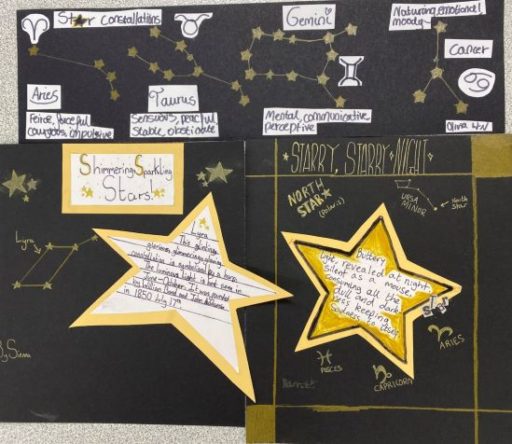 Star constallations
Gemini
Naturing, emotional
moody
Cancer
Aries
Feirce, forceful
courgous, impulsive
Taurus
Sensuous, peaceful
stable, obstinate
Mental, communicative
perceptive
Olivia
Shimmering, Sparkling
Stars!
Lyra
Lyra
This glinting,
glorious, glimmering, glowing
constallation is symbolised by a harp.
The luminous light is best seen in
June - October. It was
by William Bond and John
in 1850 July 17th
By Sienna
STARRY, STARRY NIGHT
NORTH
STAR
(polaris)
URSA
MINOR
North
Star
Buttery
light revealed at night,
silent as a mouse,
consuming all the
dull and dark-
ness keeping
Sadness to
ARIES
PISCES
CAPRICORN